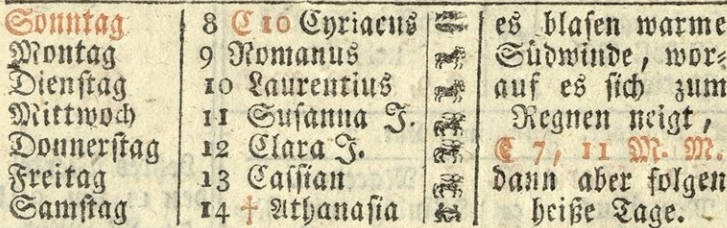 Sonntag 8 C 10 Cyriacus es blasen warme
Montag 9 Romanus Südwinde, wor=
Dienstag 10 Laurentius auf es sich zum
Mittwoch 11 Susanna J. Regnen neigt,
Donnerstag 12 Clara J. C 7, 11 M. M.
Freitag 13 Cassian dann aber folgen
Samstag 14 † Athanasia heiße Tage.